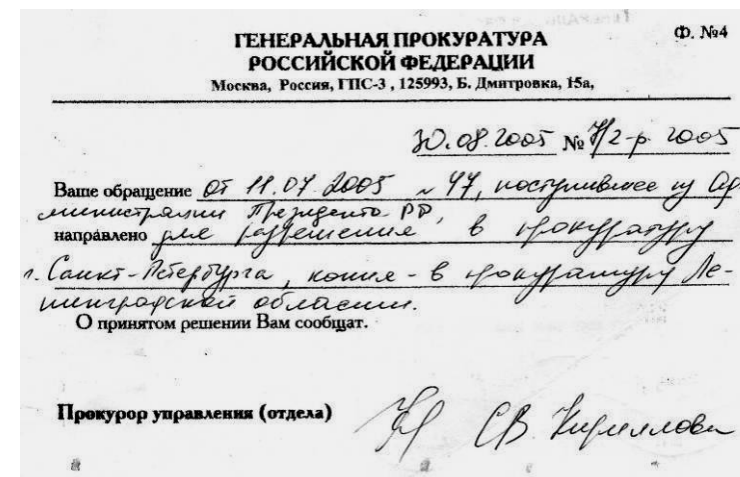 Ф. №4
ГЕНЕРАЛЬНАЯ ПРОКУРАТУРА
РОССИЙСКОЙ ФЕДЕРАЦИИ
Москва, Россия, ГПС-3 , 125993, Б. Дмитровка, 15а,
30.08.2005 № 7/2-р 2005
Ваше обращение от 11.07.2005 № 47, поступившее из Ад-
министрации Президента РФ,
направлено для разрешения в прокуратуру
г. Санкт-Петербурга, копия - в прокуратуру Ле-
нинградской области.
О принятом решении Вам сообщат.
Прокурор управления (отдела)
С.В. Кириллова